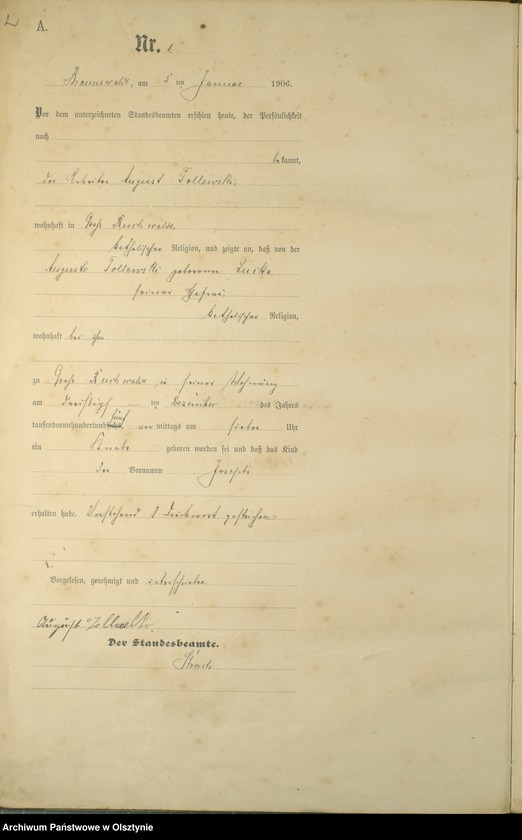 2
A.
Nr. 1
Braunswalde, am 5 ten Januar 1906.
Vor dem unterzeichneten Standesbeamten erschien heute, der Persönlichkeit
nach
bekannt,
der Arbeiter August Tollewski,
wohnhaft in Groß
katholischer Religion, und zeigte an, daß von der
Auguste Tollewski geborenen
seiner Ehefrau,
katholischer Religion,
wohnhaft bei ihm
zu Groß in seiner Wohnung
am dreißigsten Dezember des Jahres
tausendneunhundertundfünf vormittags um sieben Uhr
ein Knabe geboren worden sei und daß das Kind
den Vornamen Joseph
erhalten habe. Vorstehend 1 Druckwort gestrichen.
Vorgelesen, genehmigt und unterschrieben.
August Tollewski
Der Standesbeamte.
Archiwum Państwowe w Olsztynie